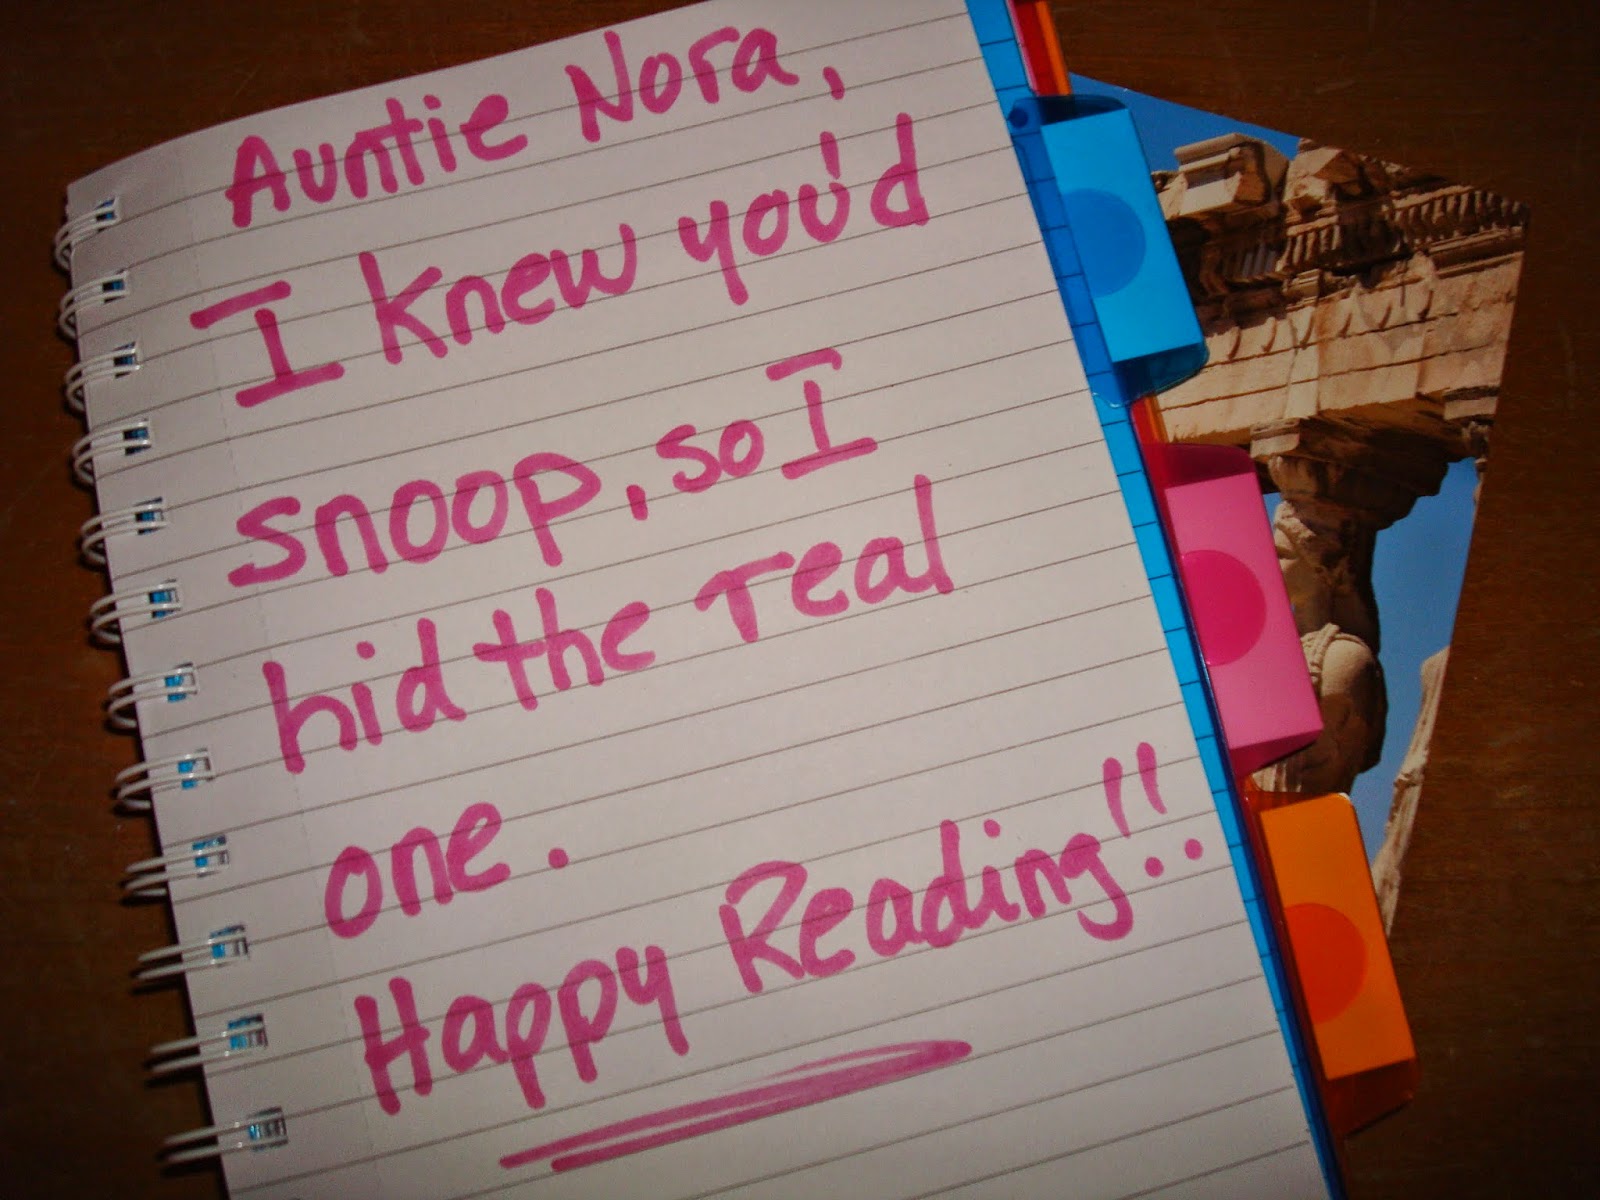 Auntie Nora,
I knew you'd
snoop, so I
hid the real
one.
Happy Reading!!